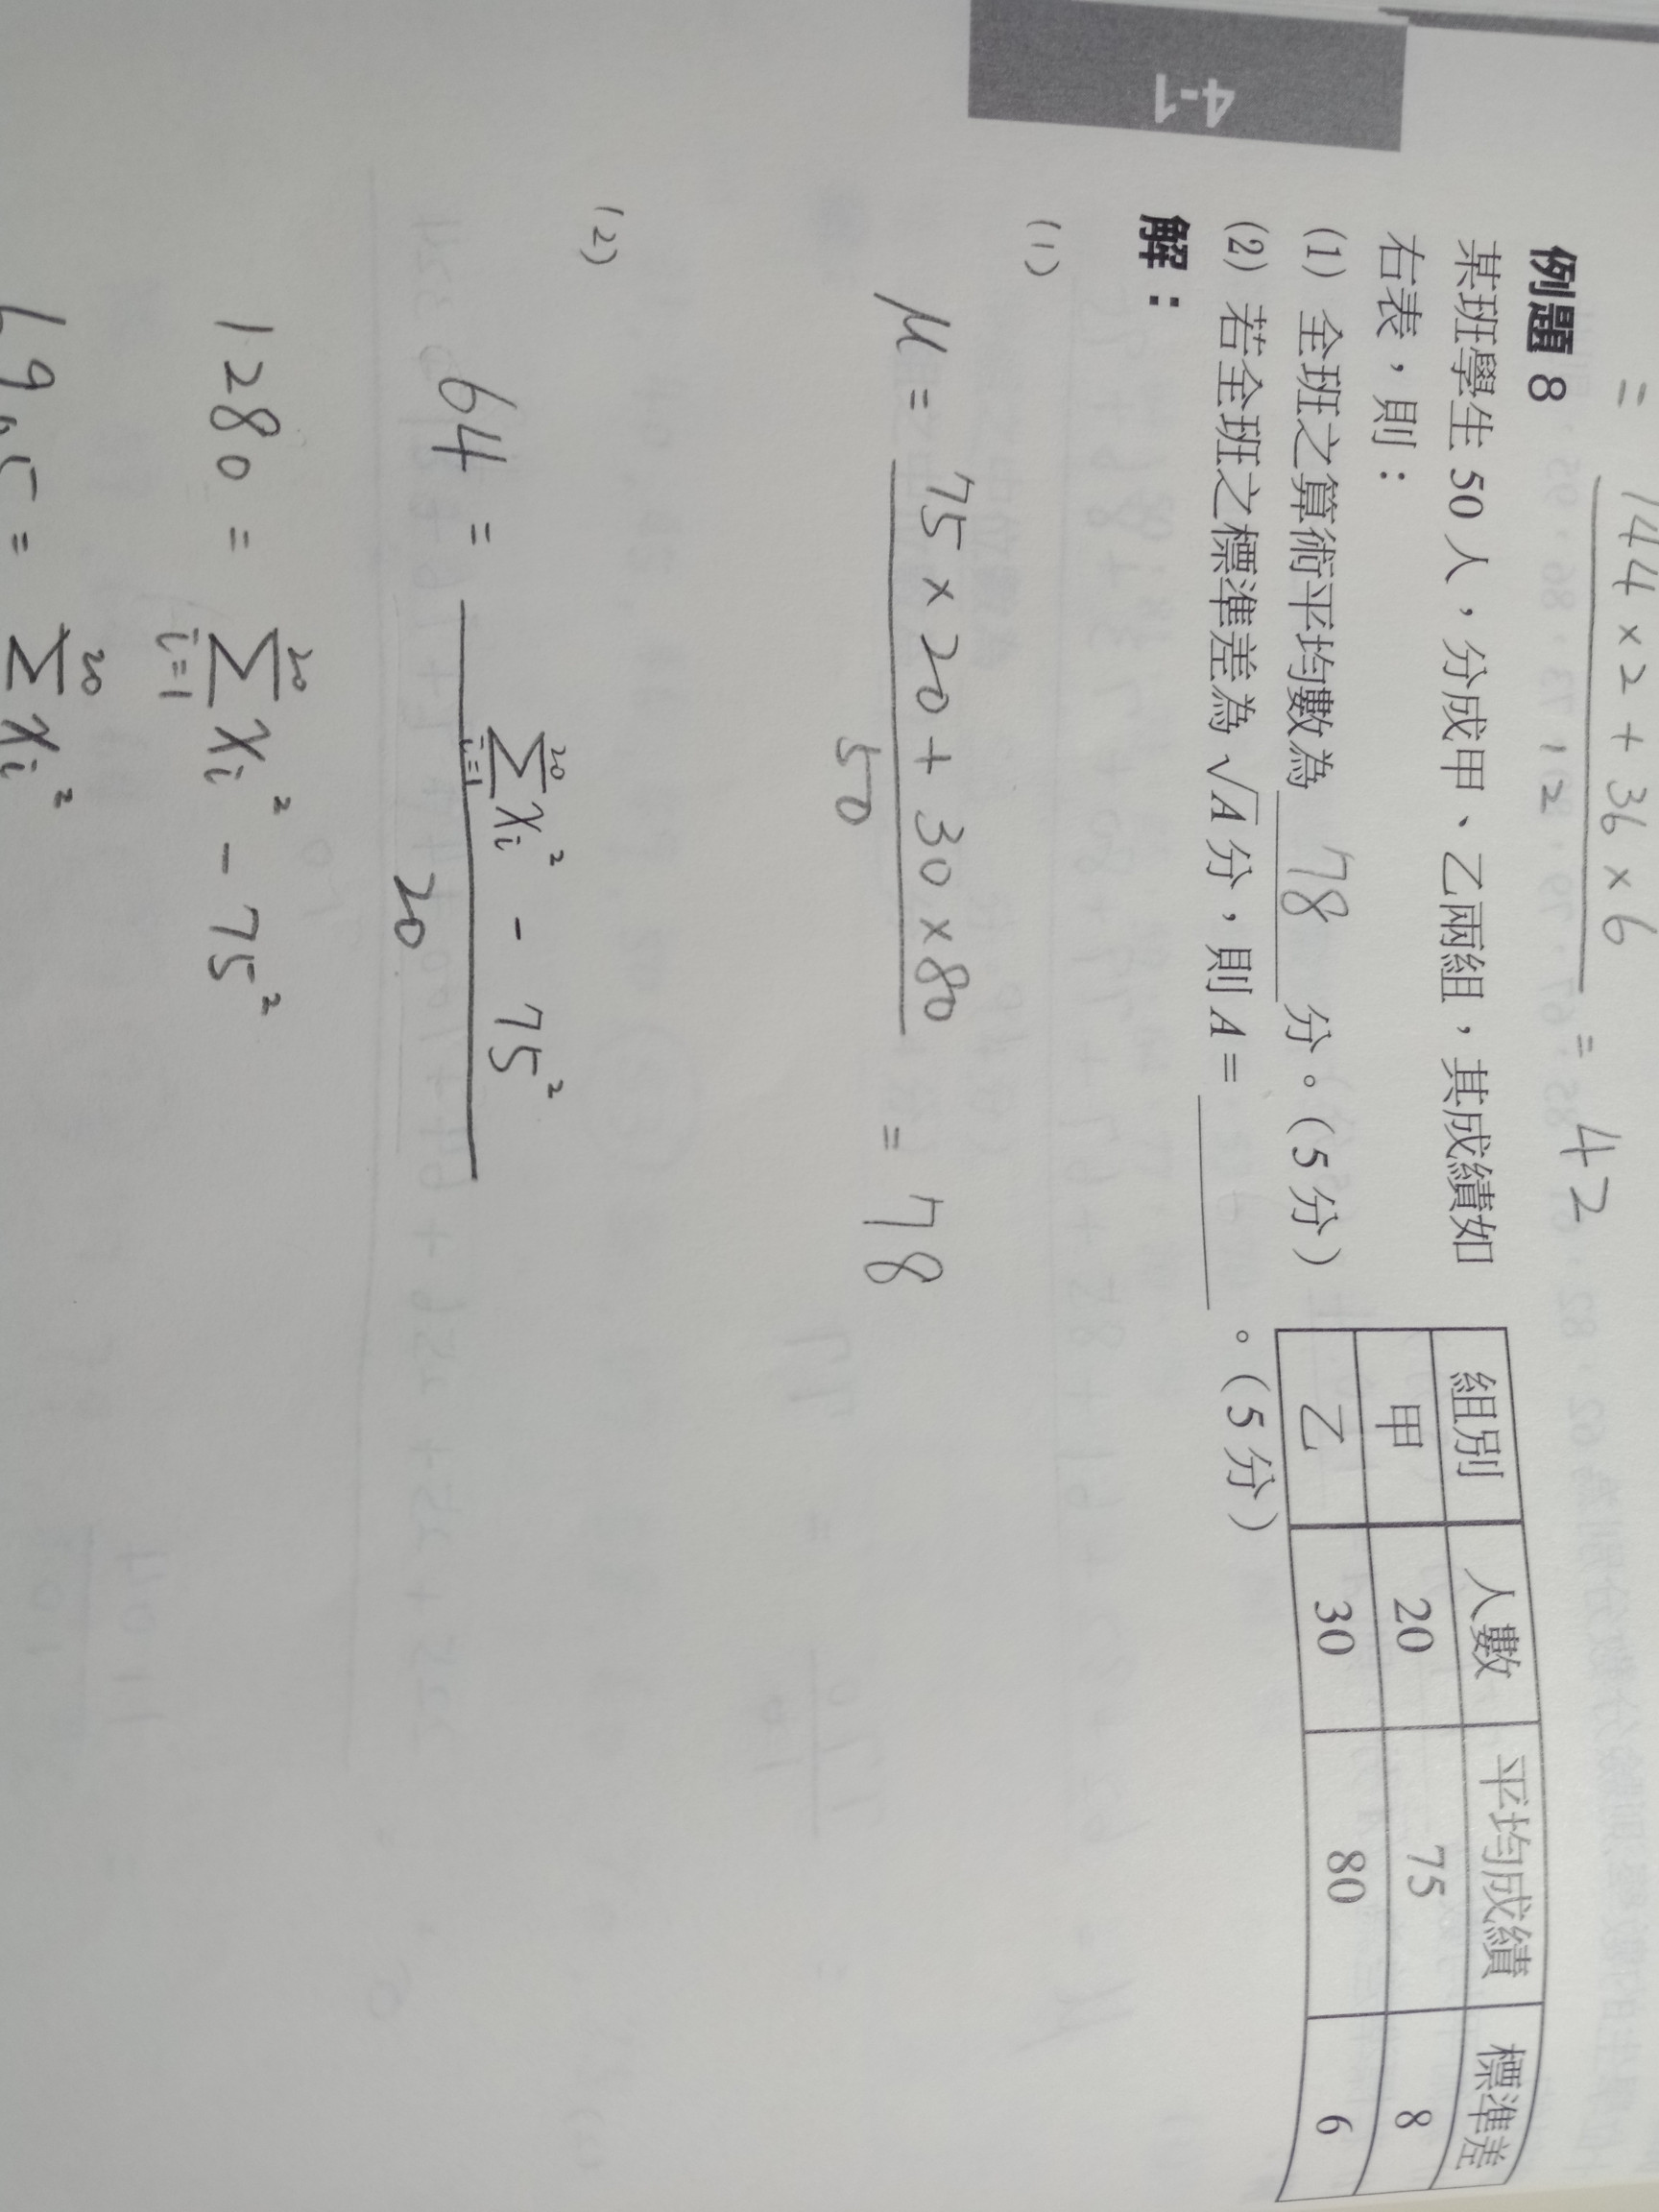 = 144 × 2 + 36 × 6 / 12 = 42
4-1
例題 8
某班學生 50 人，分成甲、乙兩組，其成績如
右表，則：
(1) 全班之算術平均數為 78 分。(5 分)
(2) 若全班之標準差為 √A 分，則 A = ______。(5 分)
組別 人數 平均成績 標準差
甲 20 75 8
乙 30 80 6
解：
(1)
μ = 75 × 20 + 30 × 80 / 50 = 78
(2)
64 = ∑ i=1 20 xi² - 75² / 20
1280 = ∑ i=1 20 xi² - 75²
= ∑ 20 xi²